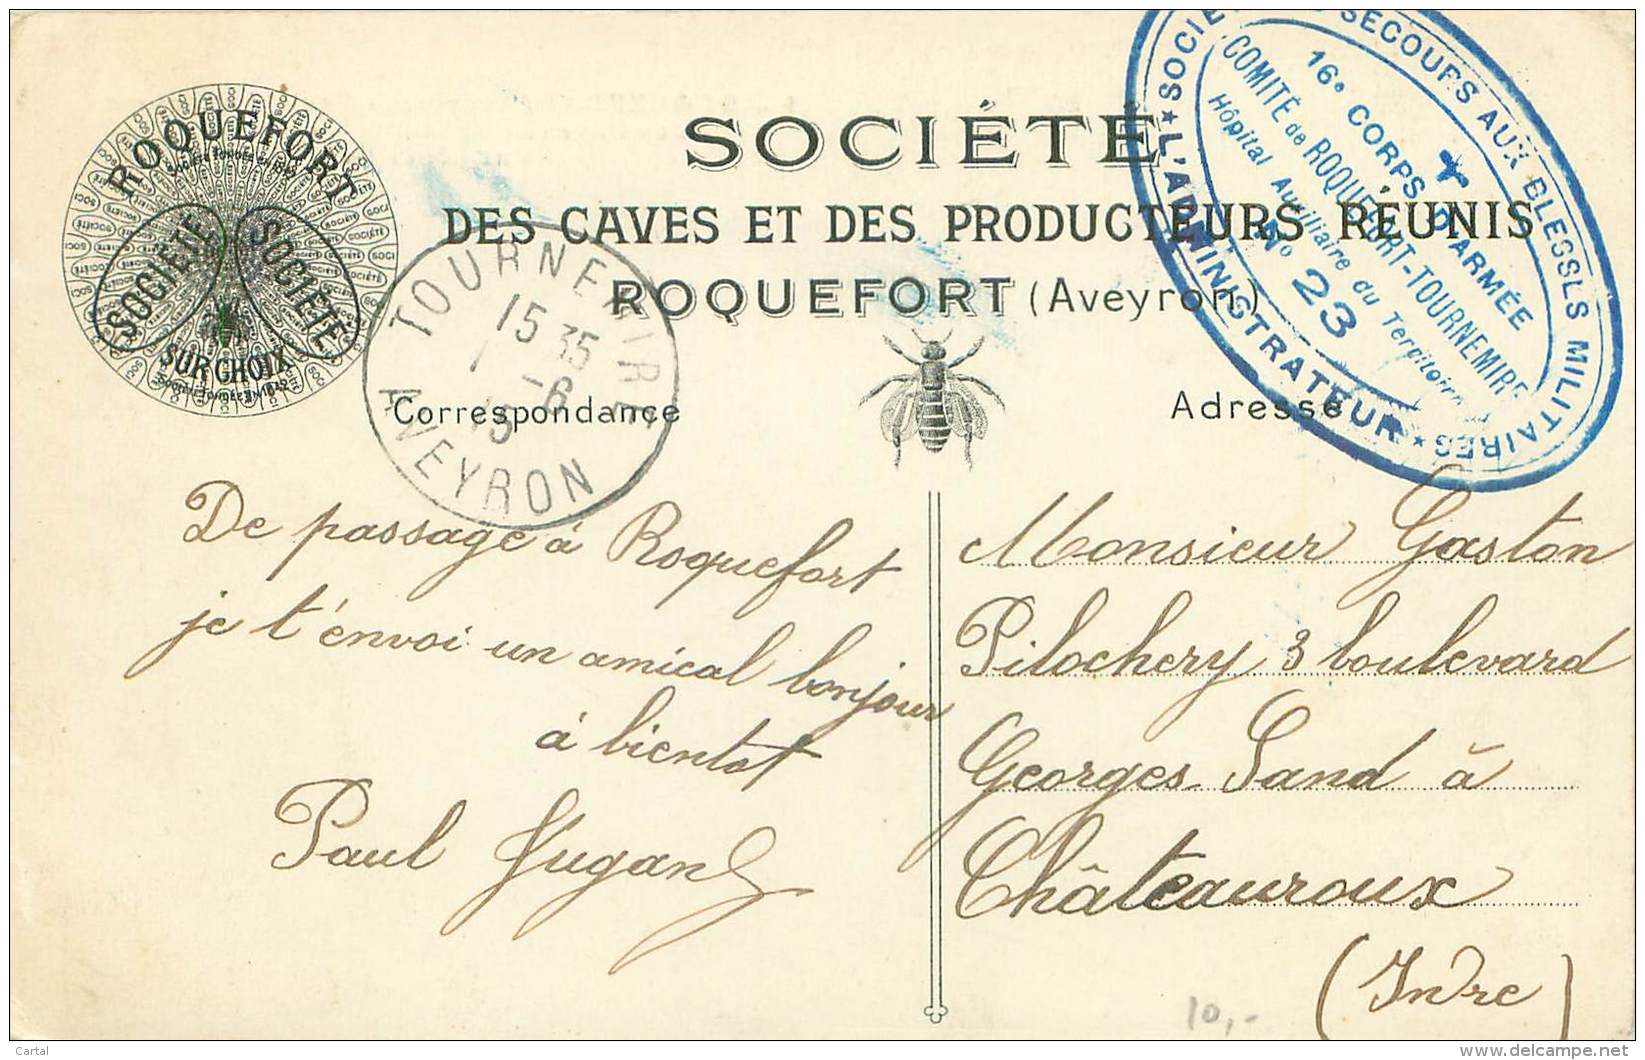 ROQUEFORT
SOCIÉTÉ SOCIÉTÉ
SURCHOIX
SOCIÉTÉ
DES CAVES ET DES PRODUCTEURS RÉUNIS
ROQUEFORT (Aveyron)
Correspondance
Adresse
TOURNEMIRE
15 35
1 -6
15
AVEYRON
SOCIÉTÉ DE SECOURS AUX BLESSÉS MILITAIRES
16e CORPS D'ARMÉE
COMITÉ de ROQUEFORT-TOURNEMIRE
Hôpital Auxiliaire du Territoire
No 23
★ L'ADMINISTRATEUR ★
De passage à Roquefort
je t'envoi un amical bonjour
à bientot
Paul
Monsieur Gaston
Pilochery 3 boulevard
Georges Sand à
Châteauroux
(Indre)
10,-
Cartal
www.delcampe.net